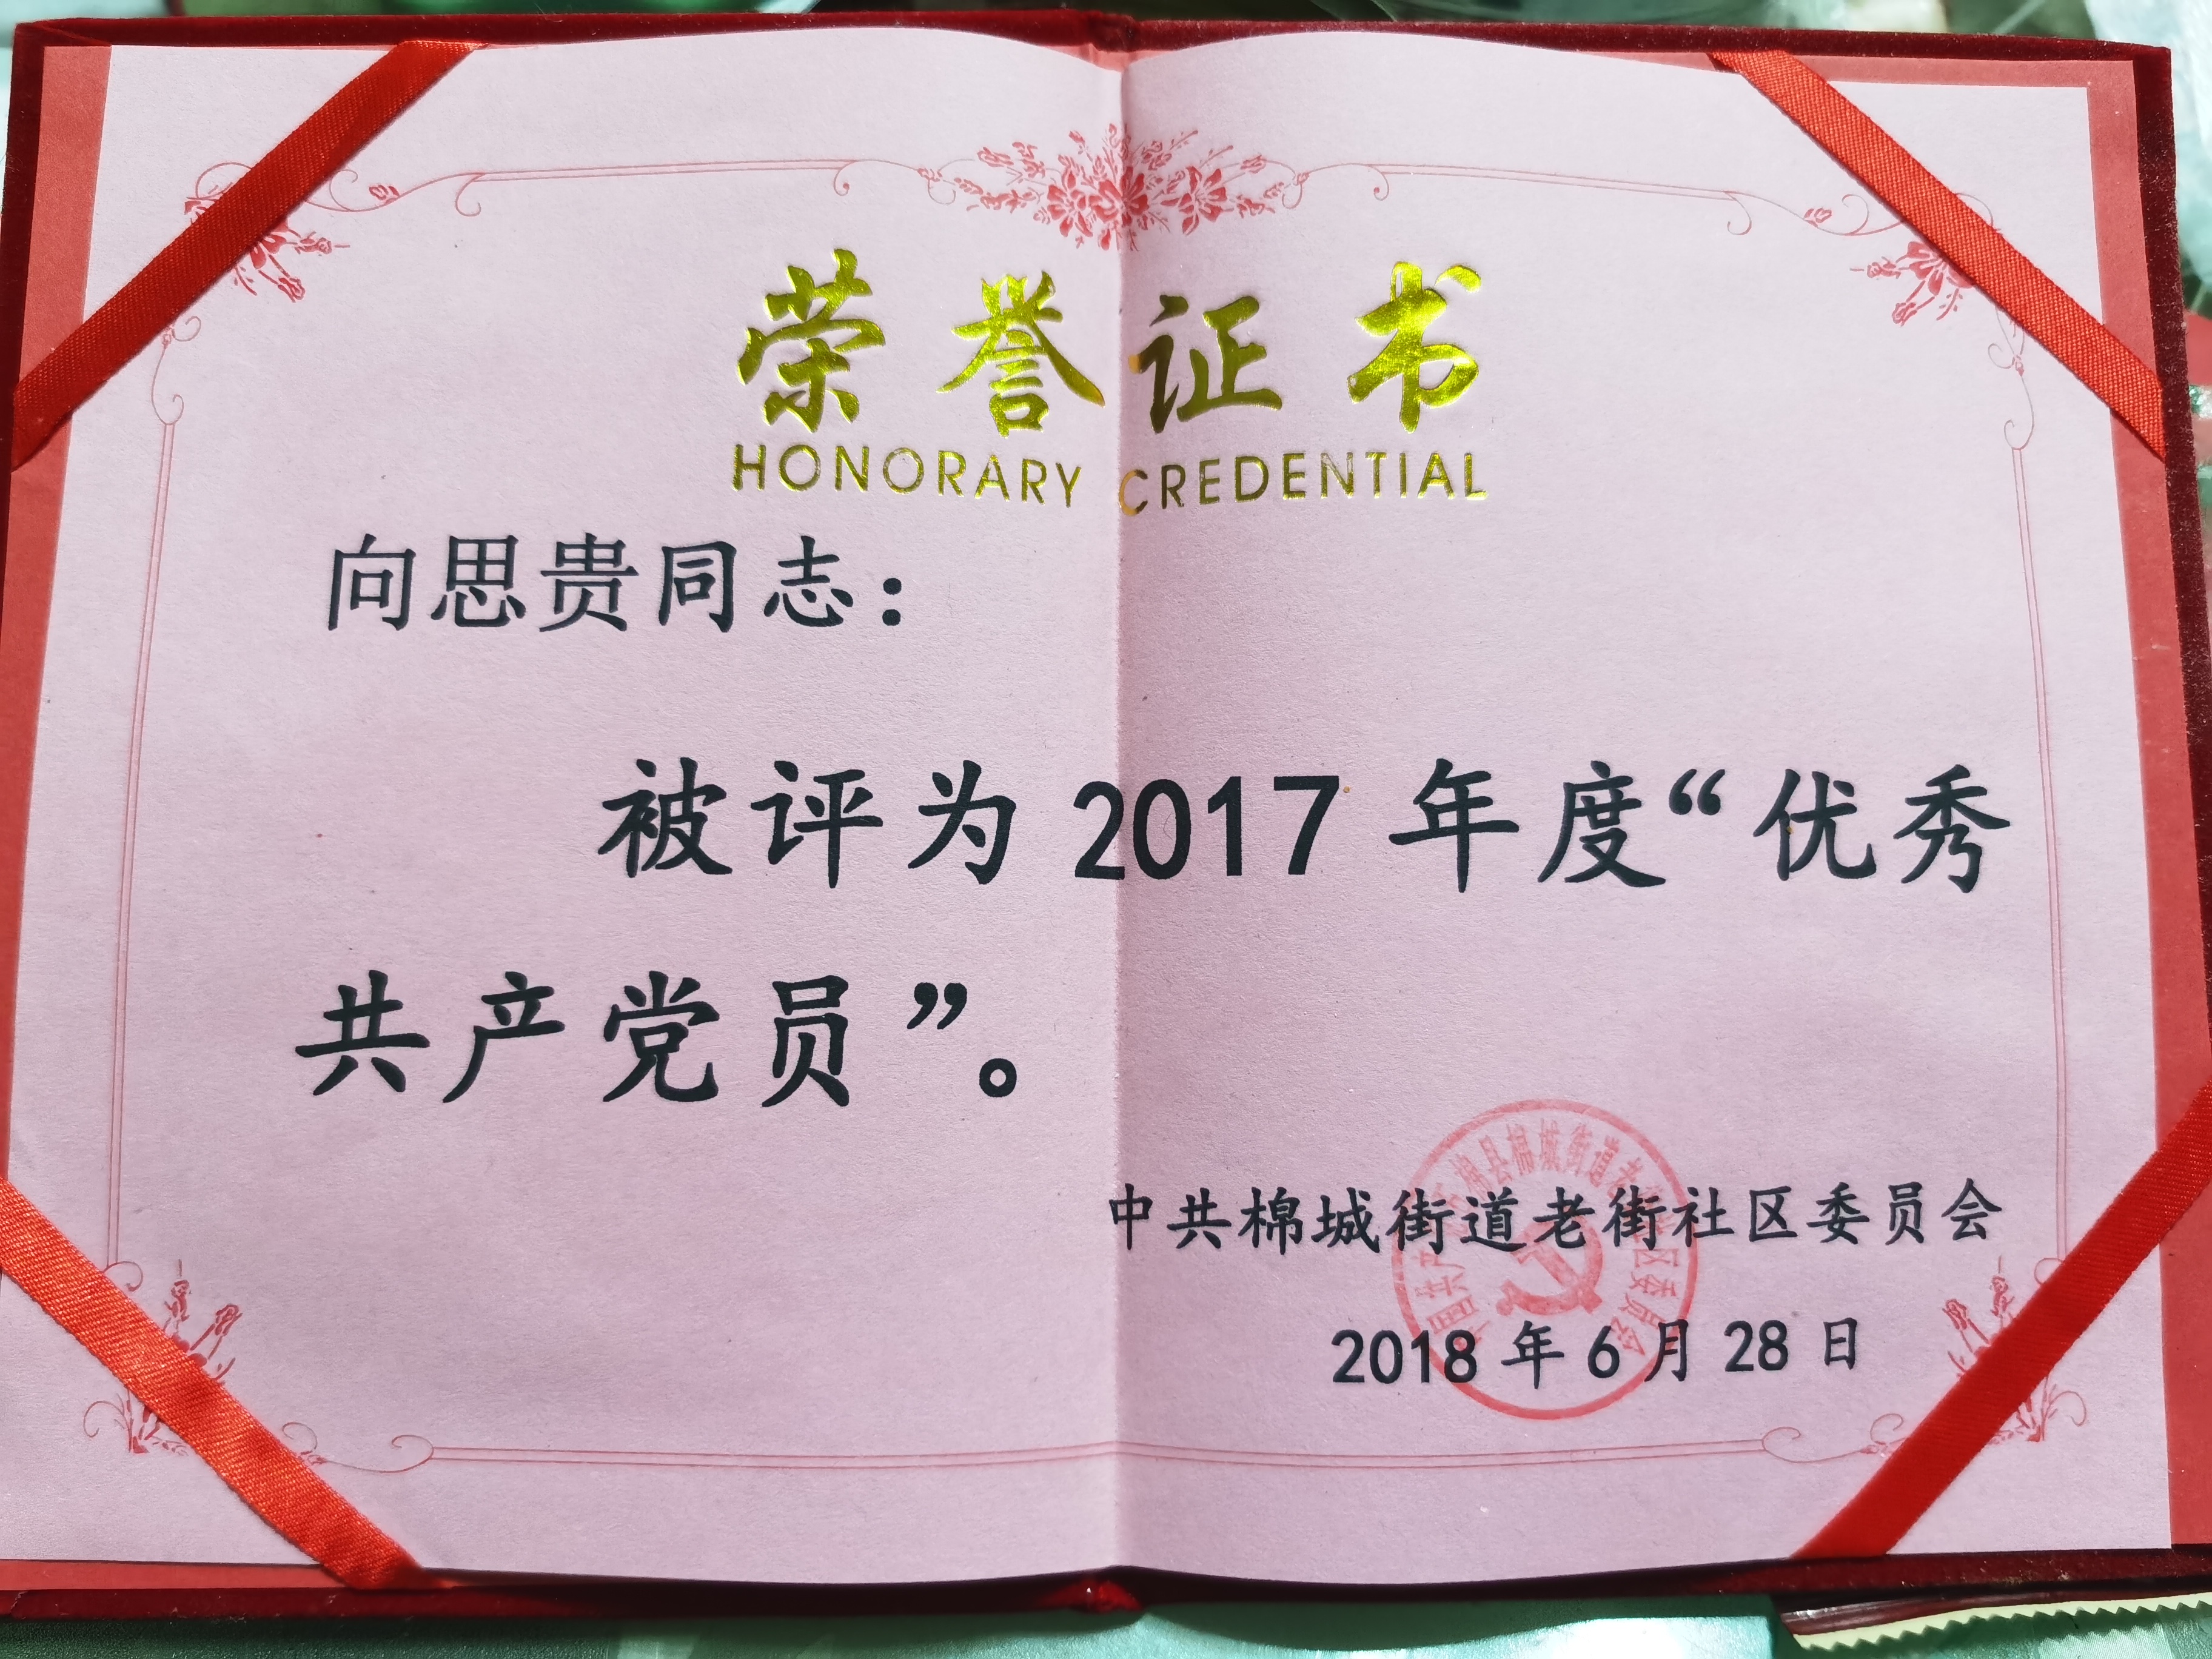 荣誉证书
HONORARY CREDENTIAL
向思贵同志：
被评为2017年度“优秀
共产党员”。
中共棉城街道老街社区委员会
2018年6月28日